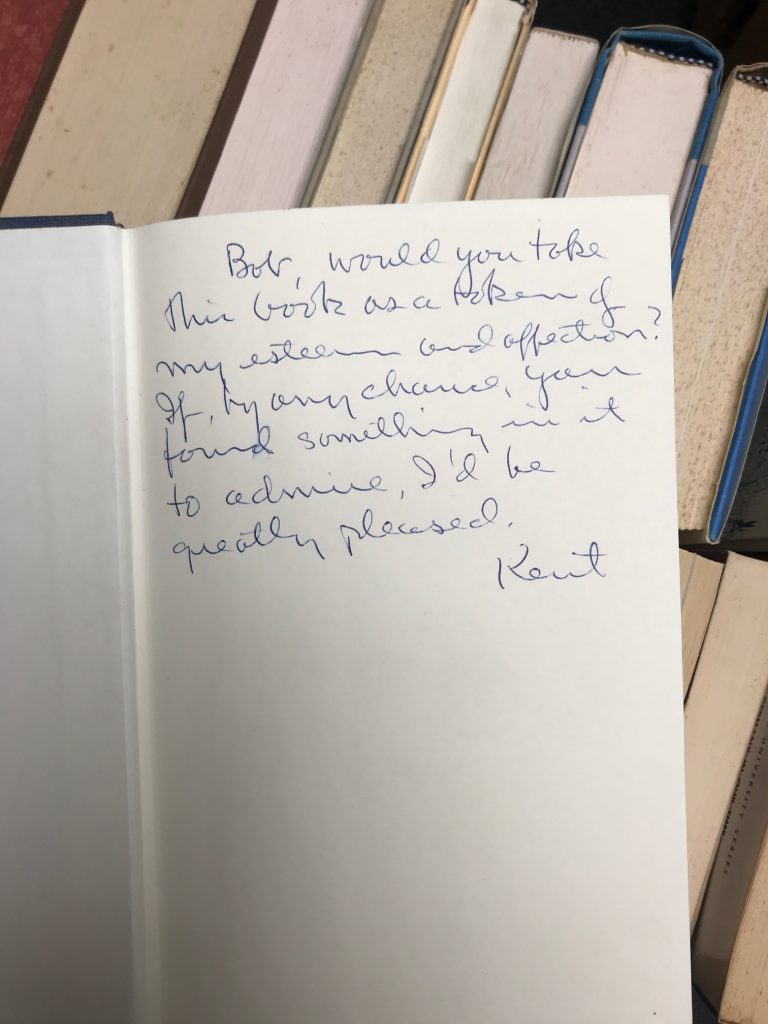 Bob, would you take
this book as a token of
my esteem and affection?
If, by any chance, you
found something in it
to admire, I'd be
greatly pleased.
Kent
UNIVERSITY SERIES